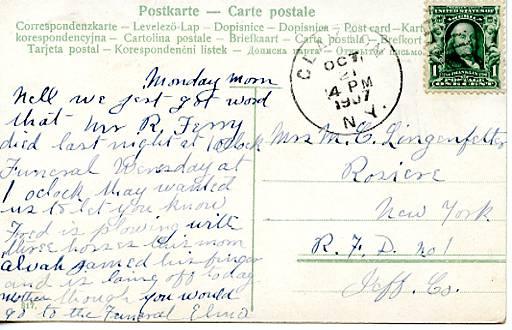 Postkarte — Carte postale
Correspondenzkarte — Levelező-Lap — Dopisnice — Dopisnica — Post card — Kart
korespondencyjna — Cartolina postale — Briefkaart — Carta postala — Brefkort
Tarjeta postal — Korespondenční listek — Дописна карта — Открытое письмо
CLAYTON
OCT
21
4 PM
1907
N.Y.
1
FRANKLIN
Monday morn
Well we jest got word
that Mr R. Ferry
died last night at 1 oclock
Funeral Wensday at
1 oclock thay wanted
us to let you know
Fred is plowing with
three horses this morn
alvah jamed his finger
and is laing off today
Mother though you would
go to the Funeral Elma
Mrs M. C. Lingenfelter
Rosiere
New York
R. F. D. No 1
Jeff. Co.
617.